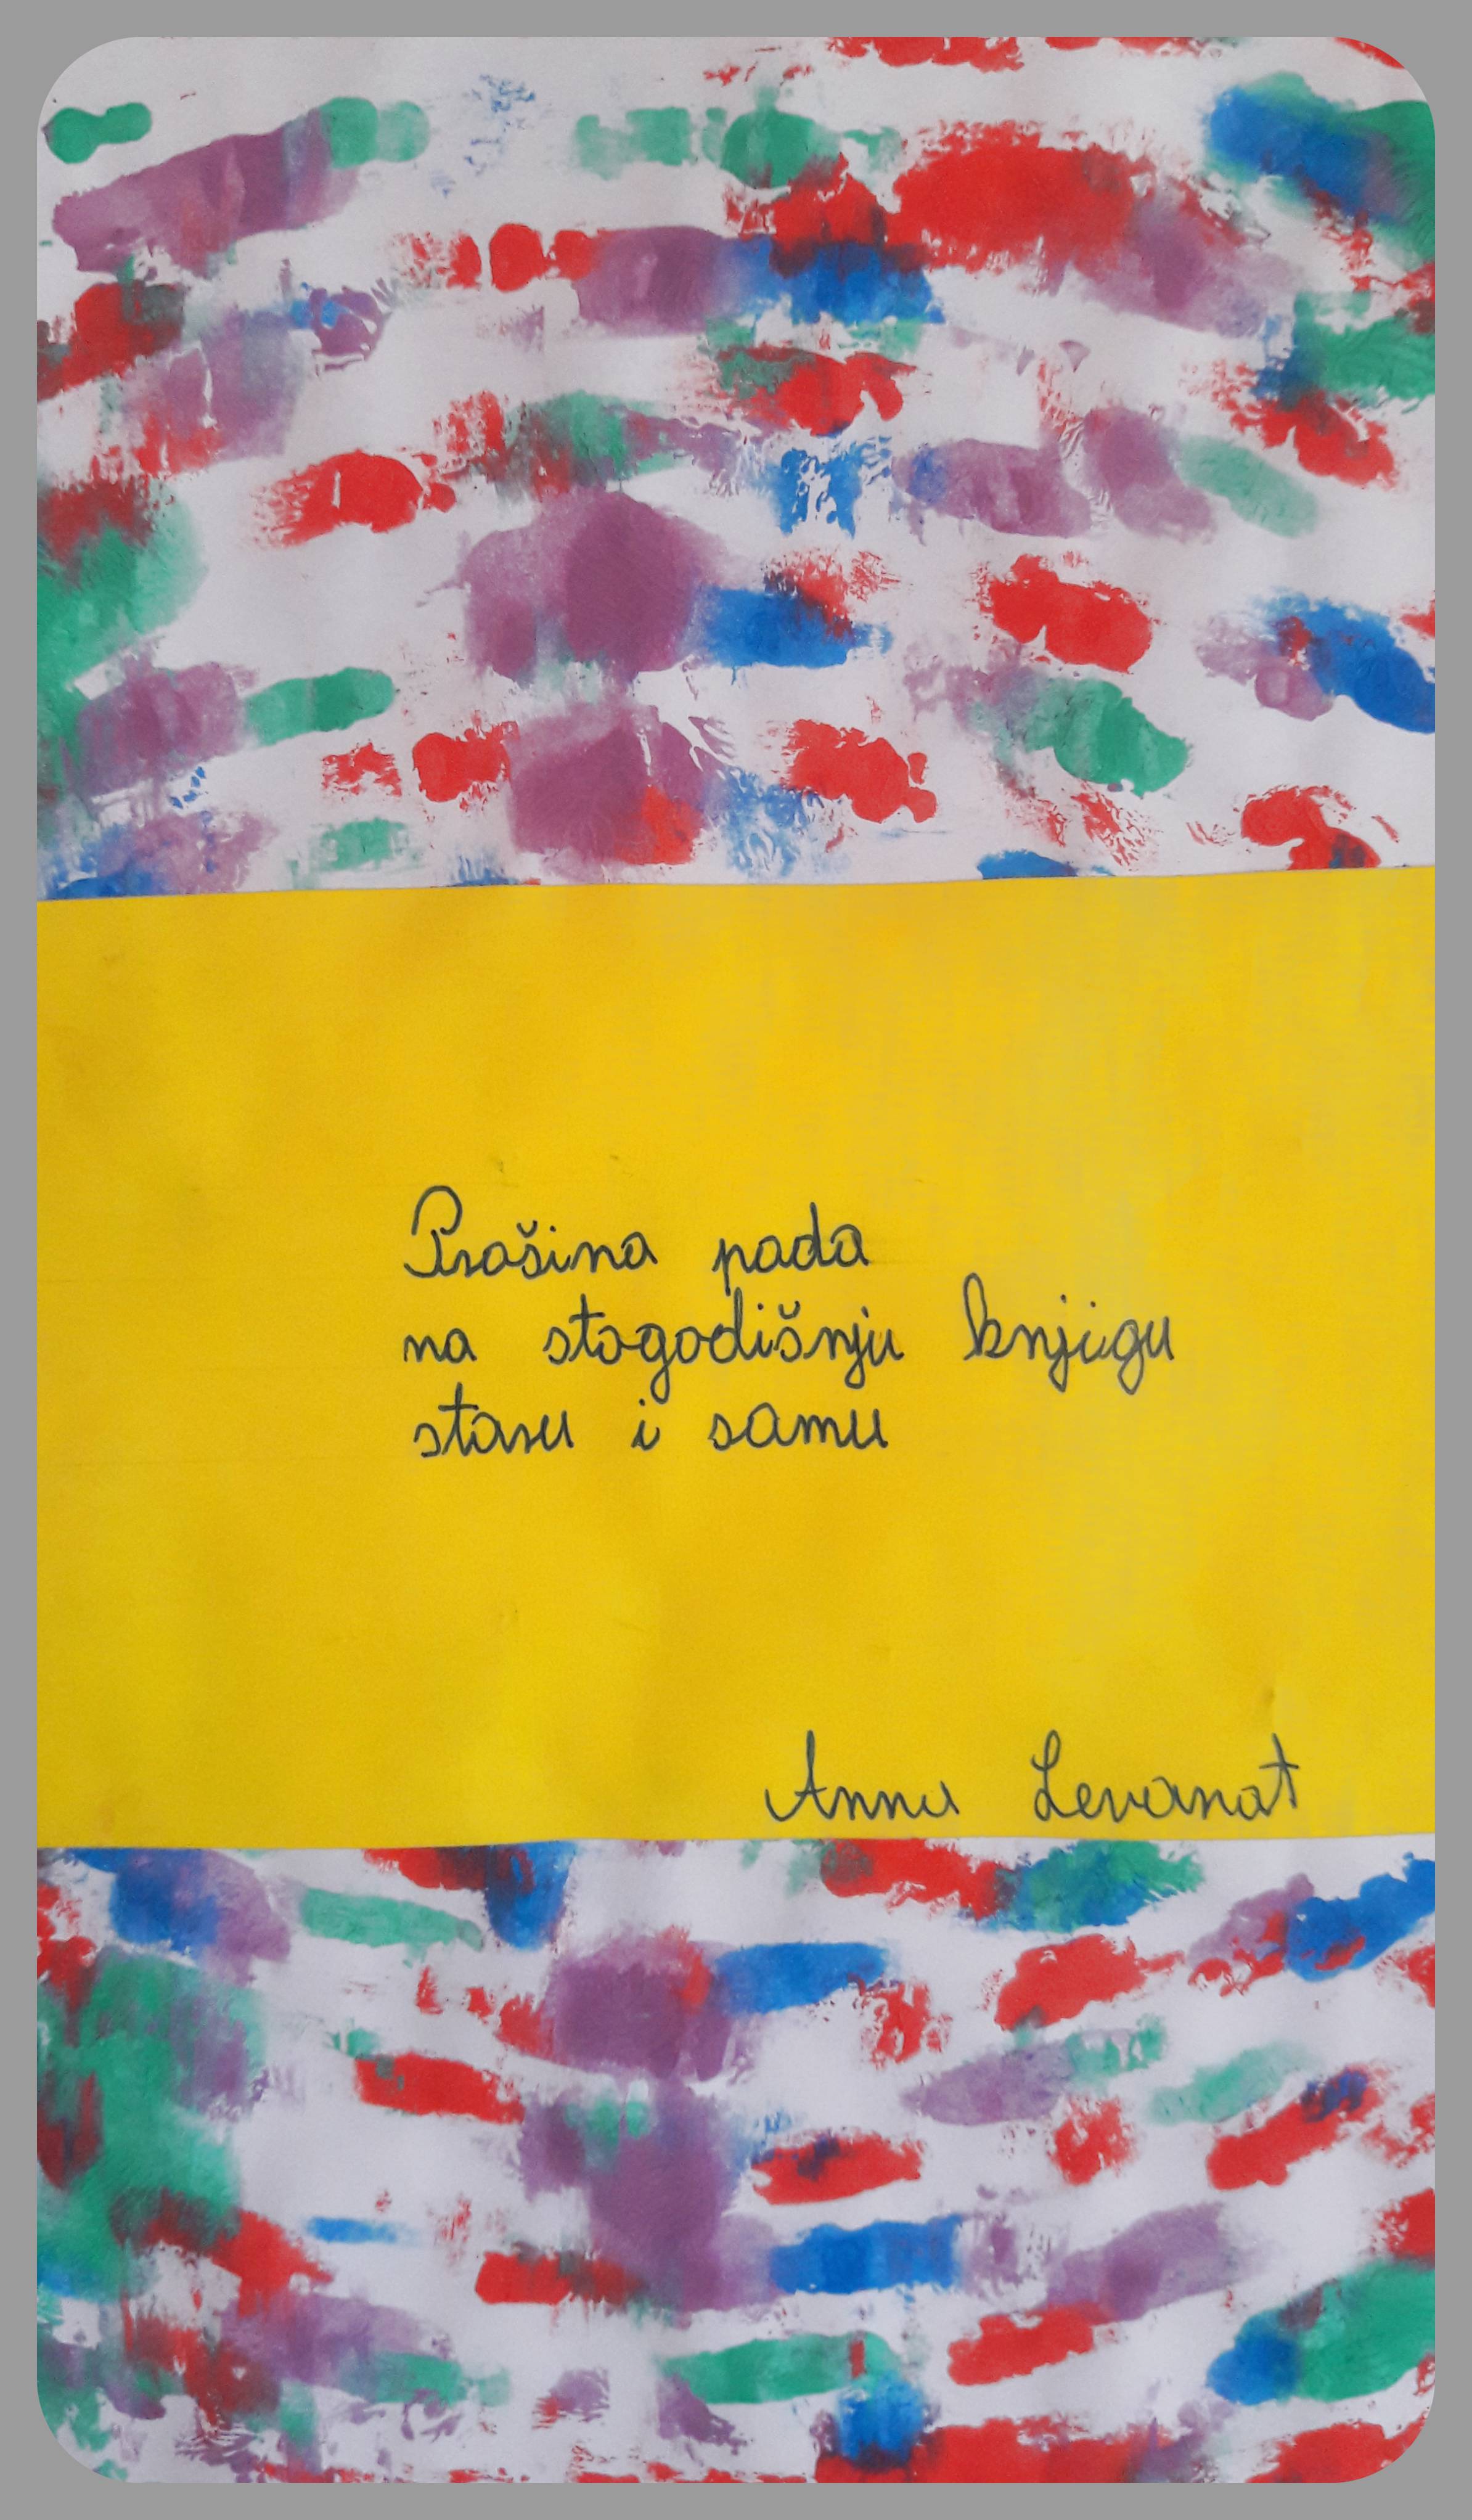 Prašina pada
na stogodišnju knjigu
staru i samu
Anna Levanat